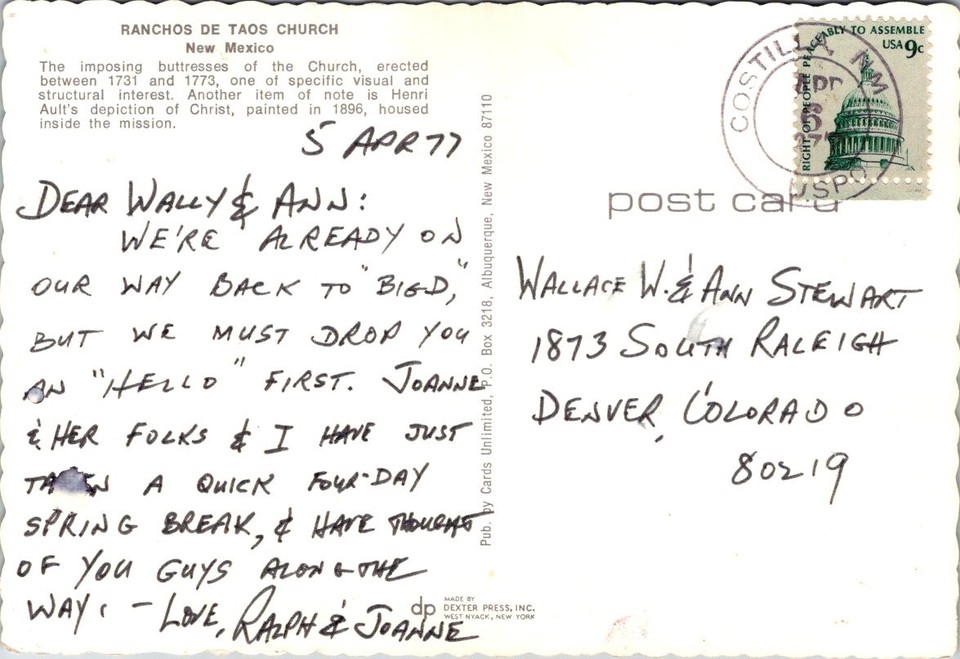 RANCHOS DE TAOS CHURCH
New Mexico
The imposing buttresses of the Church, erected
between 1731 and 1773, one of specific visual and
structural interest. Another item of note is Henri
Ault's depiction of Christ, painted in 1896, housed
inside the mission.
5 APR 77
DEAR WALLY & ANN:
WE'RE ALREADY ON
OUR WAY BACK TO "BIG D,"
BUT WE MUST DROP YOU
AN "HELLO" FIRST. JOANNE
& HER FOLKS & I HAVE JUST
TAKEN A QUICK FOUR-DAY
SPRING BREAK, & HAVE THOUGHT
OF YOU GUYS ALONG THE
WAY. - LOVE, RALPH & JOANNE
Pub. by Cards Unlimited, P.O. Box 3218, Albuquerque, New Mexico 87110
dp MADE BY
DEXTER PRESS, INC.
WEST NYACK, NEW YORK
COSTILLA NM
APR
USPO
RIGHT OF PEOPLE PEACEABLY TO ASSEMBLE
USA 9c
post card
WALLACE W. & ANN STEWART
1873 SOUTH RALEIGH
DENVER, COLORADO
80219